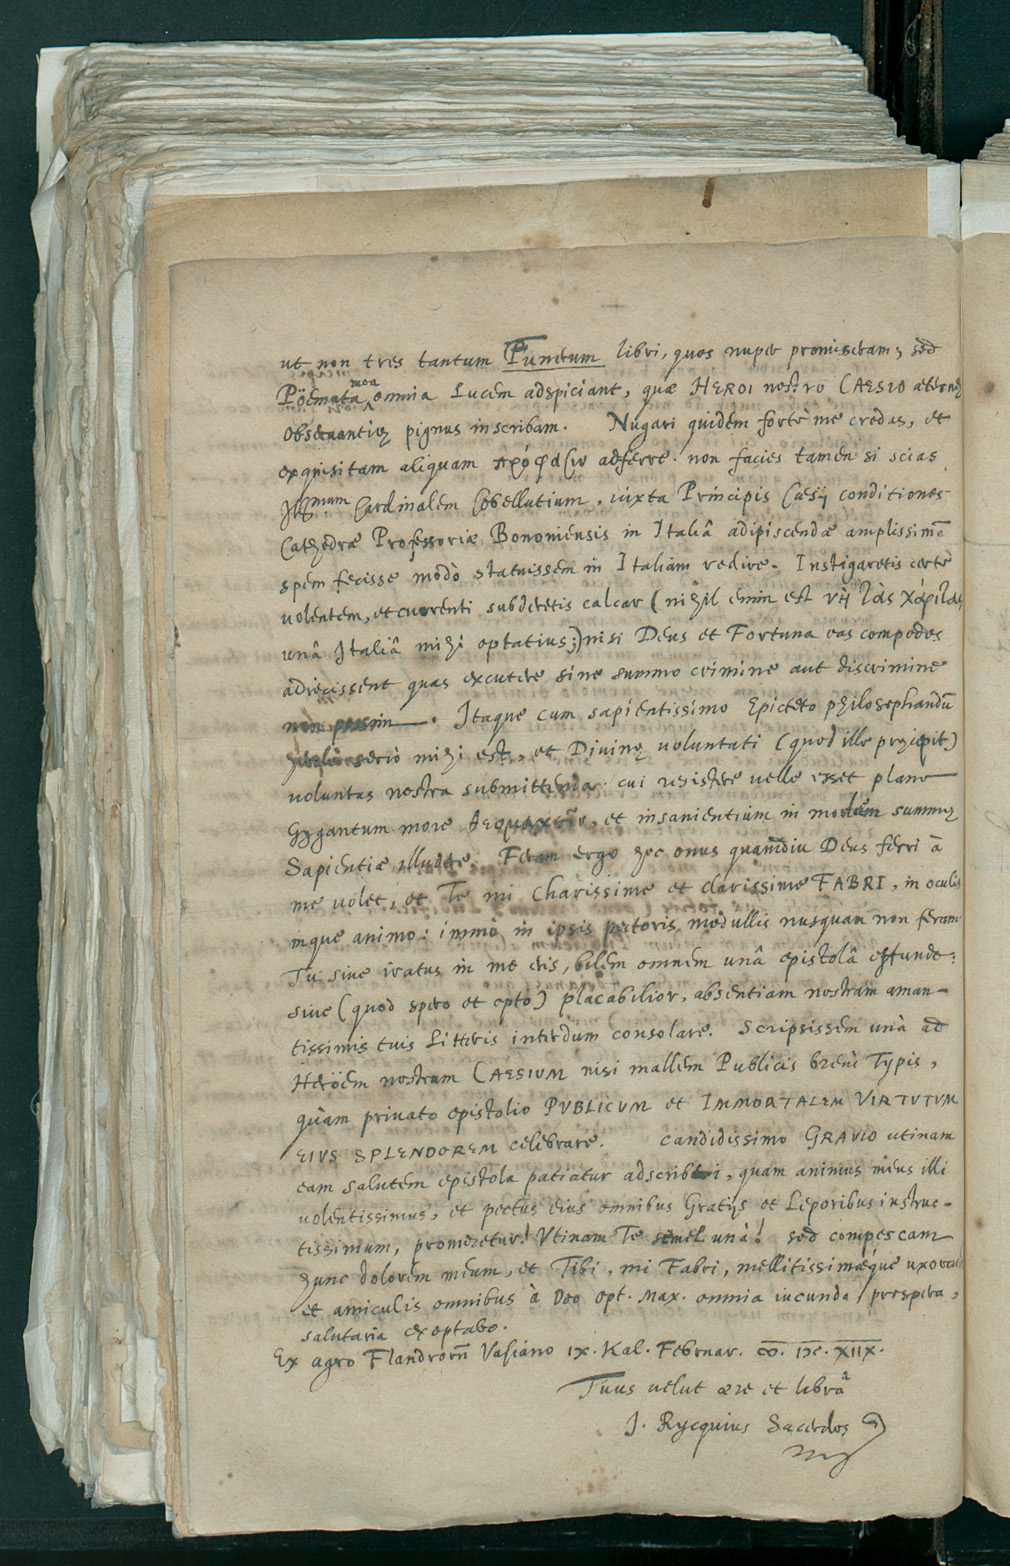 ut non tres tantum Funerum libri, quos nuper promiseram, sed
Pöemata mea omnia Lucem adspiciant, quæ HEROI nostro CAESIO æternæ
obseruantiæ pignus inscribam. Nugari quidem fortè me credas, et
exquisitam aliquam πρόφασιν adferre. non facies tamen si scias
Illmum Cardinalem Cobellutium, iuxta Principis Cæsij conditiones
Cathedræ Professoriæ Bononiensis in Italiâ adipiscendæ amplissimā
spem fecisse modò statuissem in Italiam redire. Instigaretis certè
volentem, et currenti subderetis calcar (nihil enim est νὴ τὰς χάριτας
unâ Italiâ mihi optatius;) nisi Deus et Fortuna eas compedes
adiecissent quas excutere sine summo crimine aut discrimine
non possim. Itaque cum sapientissimo Epicteto philosophandū
serio mihi est, et Divinæ voluntati (quod ille præcipit)
voluntas nostra submittenda: cui resistere velle esset plane
Gygantum more θεομαχεῖν, et insanientium in modum summæ
Sapientiæ illudere. Feram ergo hoc onus quamdiu Deus ferri à
me volet, et Te mi Charissime et clarissime FABRI, in oculis
inque animo: immo in ipsis pectoris medullis nusquam non feram
Tu siue iratus in me eris, bilem omnem unâ epistolâ effunde:
siue (quod spero et opto) placabilior, absentiam nostram aman-
tissimis tuis Litteris interdum consolare. Scripsissem unà ad
Heröem nostrum CAESIUM nisi mallem Publicis breui Typis,
quàm priuato epistolio PVBLICVM et IMMORTALEM VIRTVTVM
EIVS SPLENDOREM celebrare. Candidissimo GRAVIO utinam
eam salutem epistola patiatur adscribi, quam animus meus illi
volentissimus, et pectus eius omnibus Gratijs et Leporibus instruc-
tissimum, promeretur! Vtinam Te semel unà! sed compescam
hunc dolorem meum, et Tibi, mi Fabri, mellitissimæque uxorculæ
et amiculis omnibus à Deo opt. Max. omnia iucunda, prospera,
salutaria exoptabo.
Ex agro Flandrorū Vasiano IX. Kal. Februar. CIↃ. IↃC. XIIX.
Tuus velut ære et librâ
J. Rycquius Sacerdos